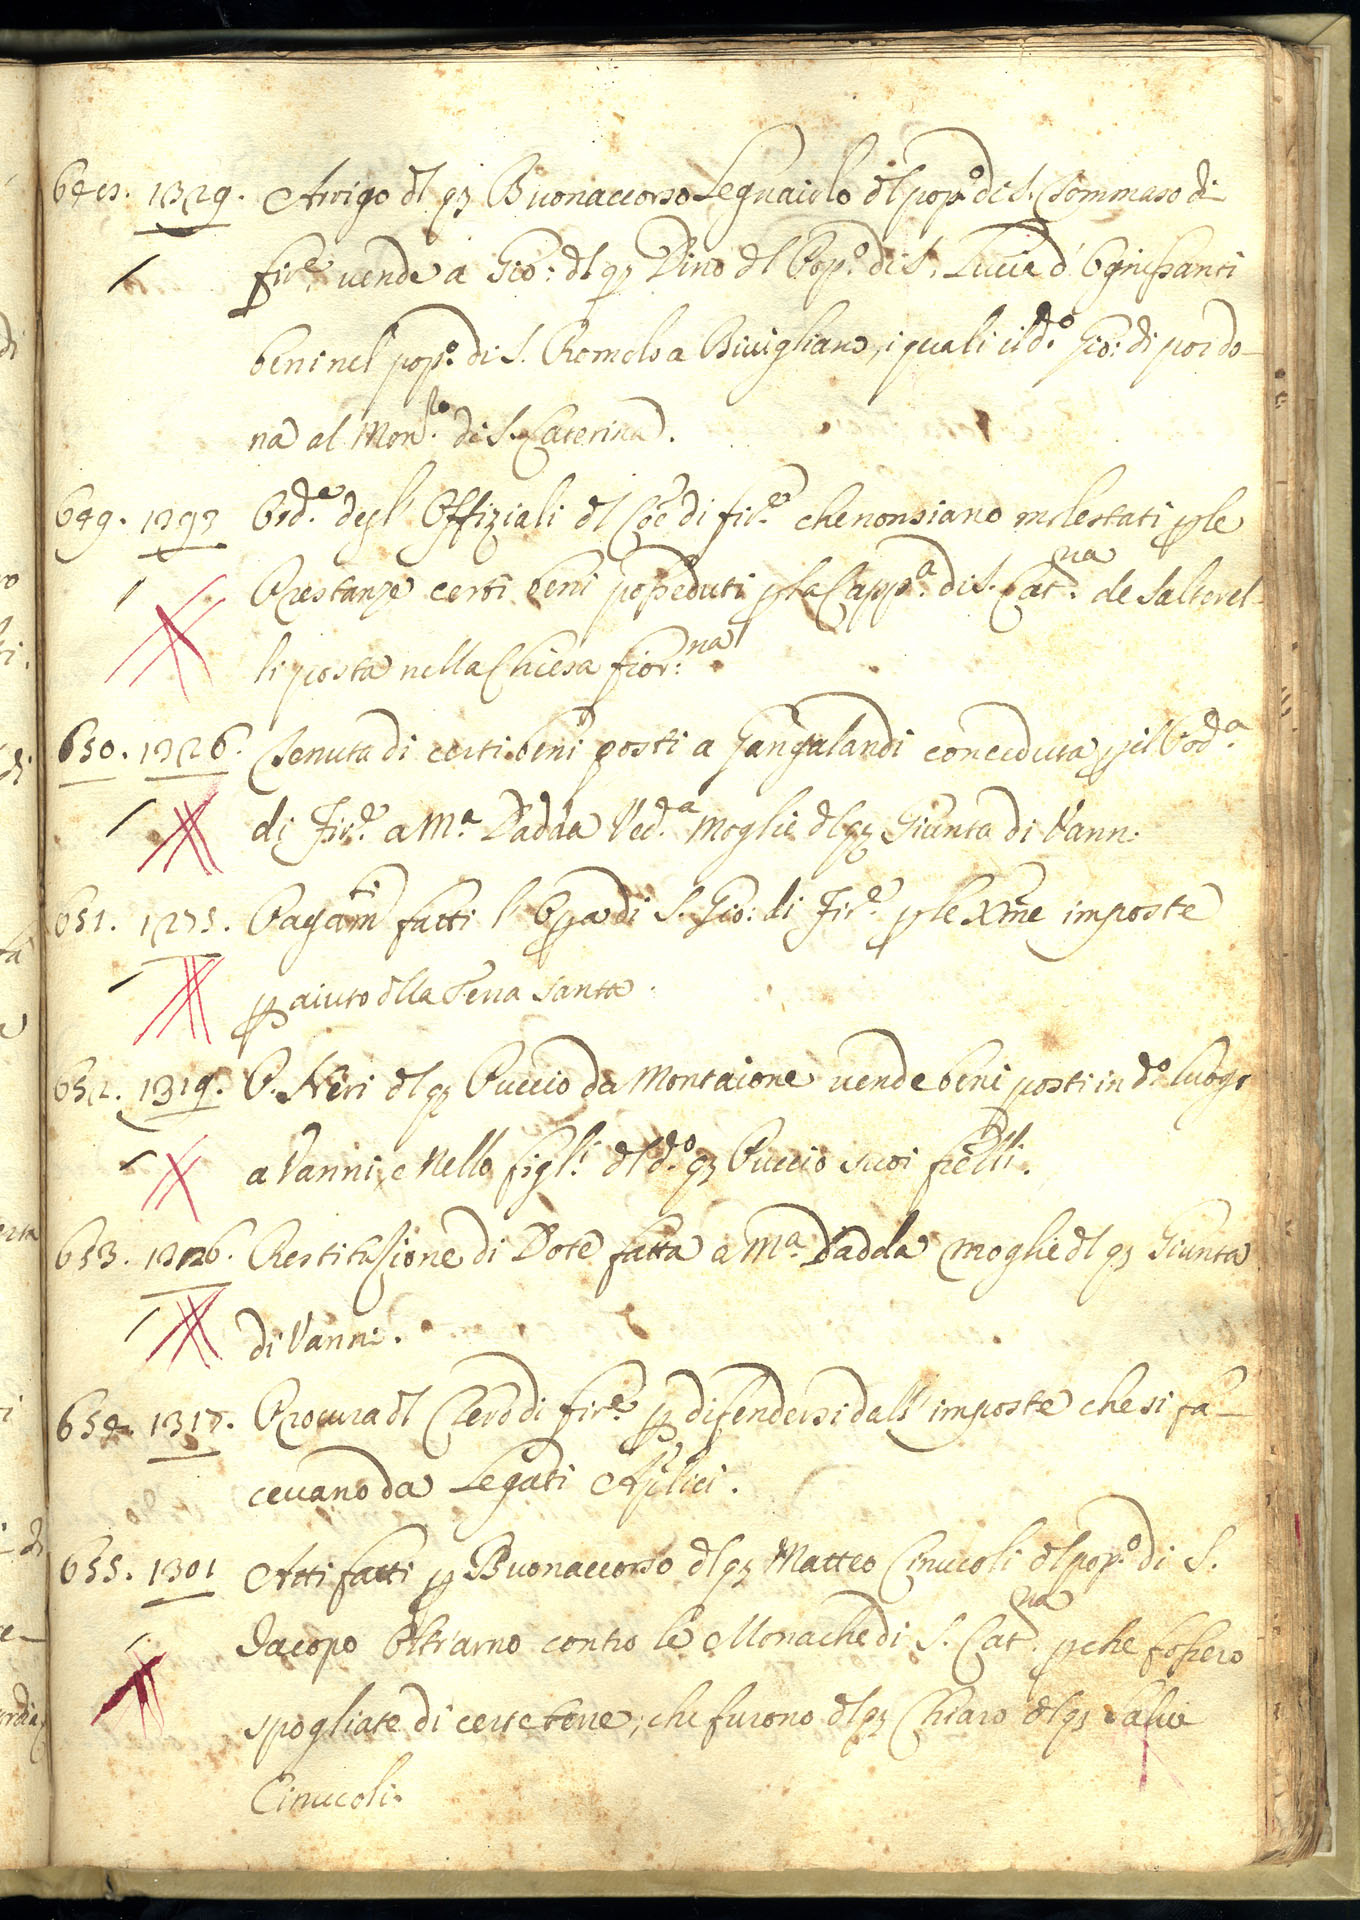 648. 1329. Arrigo dl qz Buonaccorso Legnaiolo dl popº di S. Tommaso di
Firᵉ. vende a Gio: dl qz Dino dl Popº. di S. Lucia d'Ognissanti
beni nel popº. di S. Romolo a Bivigliano, i quali il dº. Gio: di poi do-
na al Monʳᵒ. di S. Caterina.
649. 1393 Ordᵉ. degl' Offiziali dl Coe di Firᵉ. che non siano molestati p le
Prestanze certi beni posseduti p la Cappᵃ. di S. Catⁿᵃ. de Salterel-
li posta nella Chiesa Fiorⁿᵃ.
650. 1326. Tenuta di certi beni posti a Gangalandi conceduta p il Podᵃ.
di Firᵉ. a Mᵃ. Dadda Vedᵃ. Moglie dl qz Giunta di Vanni.
651. 1275. Pagamᵗⁱ fatti l' Opa di S. Gio: di Firᵉ. p le Xme imposte
p aiuto dlla Terra Santa.
652. 1319. P. Neri dl qz Puccio da Montaione vende beni posti in dº. luogo
a Vanni, e Nello figlⁱ. dl dº. qz Puccio suoi frelli.
653. 1326. Restituzione di Dote fatta a Mᵃ. Dadda moglie dl qz Giunta
di Vanni.
654. 1317. Procura dl Clero di Firᵉ. p difendersi dall' imposte che si fa-
cevano da Legati Aplici.
655. 1301 Atti fatti p Buonaccorso dl qz Matteo Cinucoli dl popº. di S.
Iacopo Oltrarno contro le Monache di S. Catⁿᵃ. p che fossero
spogliate di certe terre, che furono dl qz Chiaro dl qz Salvi
Cinucoli.